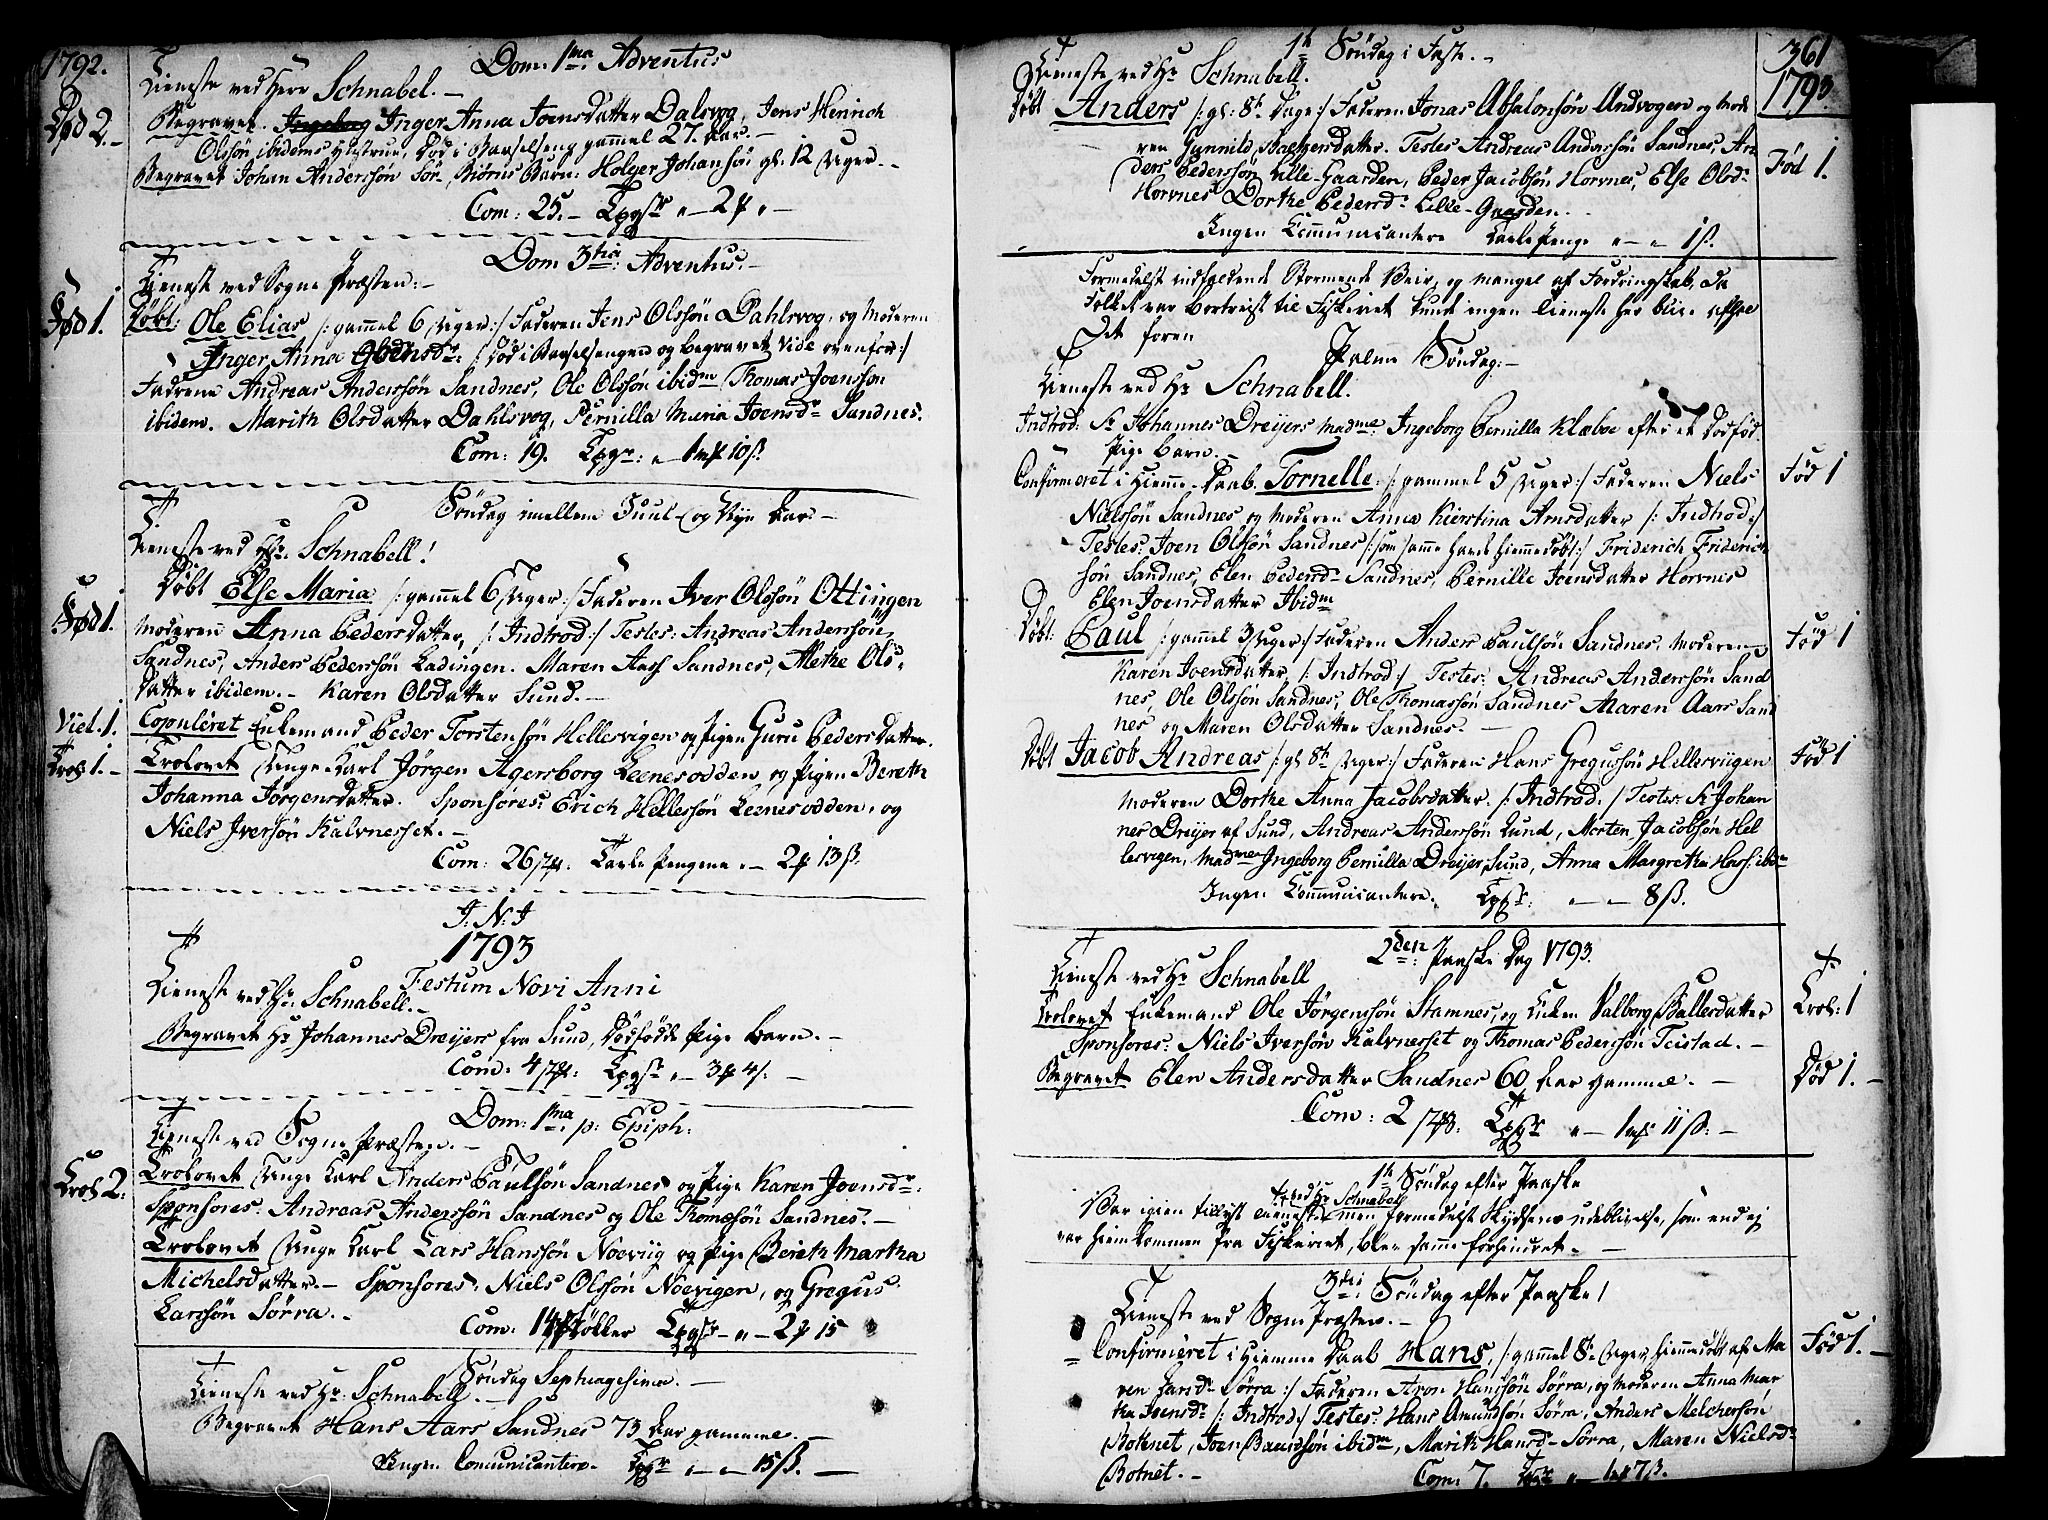 1792.
Dom: 1ma Adventus
Tieneste ved Herr Schnabel. –
Død 2. –
Begravet. Ingeborg Inger Anna Joensdatter Dalsvog, Jens Henrich
Olssøn ibidems Hustrue, død i Barselseng gammel 27. Aar. –
Begravet Johan Anderssøn Sør-Biørns Barn: Holger Johansøn gl. 12 Uger. –
Com: 25. –
Dom 3tia: Adventus. –
Tieneste ved Sogne Præsten: –
Fød 1.
Døbt: Ole Elias /: gammel 6 Uger :/ Faderen Jens Olssøn Dahlsvog, og Moderen
Inger Anna /: død i Barselsengen og begravet vide ovenfor :/
Fadrene Andreas Anderssøn Sandnes, Ole Olssøn ibidm Thomas Joenssøn
ibidem. Marith Olsdatter Dahlsvog, Pernilla Maria Joensdr Sandnes.
Com: 19. 10 ß.
Søndag imellem Juul og Nyt Aar. –
Tieneste ved Hr. Schnabell!
Fød 1.
Døbt Else Maria /: gammel 6 Uger :/ Faderen Iver Olssøn Ottingen
Moderen Anna Pedersdatter, /: Indtrod :/ Testes: Andreas Anderssøn
Sandnes, Anders Pederssøn Ladingen. Maren Aars Sandnes, Methe Ols-
datter ibidem. – Karen Olsdatter Sund. –
Viel. 1.
Copuleret Enkemand Peder Torstensøn Hellesvigen og Pigen Guru Pedersdatter.
Trol: 1. –
Trolovet Unge Karl Jørgen Agersborg Leenesodden, og Pigen Bereth
Johanna Jørgensdatter. Sponsores: Erich Hellessøn Leenesodden, og
Niels Iversøn Kalvnesset. –
Com: 26 Tavle Pengene 2 13 ß.
J: N: J
1793
Festum Novi Anni
Tieneste ved Hr. Schnabell. –
Begravet Hr Johannes Dreijers fra Sund, Dødfødde Pige Barn. –
Com: 4
Dom: 1ma p: Epiph:
Tieneste ved Sogne Præsten. –
Trol 2.
Trolovet Unge Karl Anders Paulsøn Sandnes og Pige Karen Joensdr:
Sponsores: Andreas Anderssøn Sandnes og Ole Thomæsøn Sandnes. –
Trolovet Unge Karl Lars Hanssøn Noeviig og Pige Bereth Martha
Michelsdatter. – Sponsores: Niels Olssøn Noevigen, og Gregus
Larssøn Sørra. –
Com: 2 15
Søndag Septuagesima. –
Tieneste ved Hr: Schnabell. –
Begravet Hans Aars Sandnes 73 Aar gamme. –
Ingen Comunicantere. 15 ß. –
361
1793
1te Søndag i Faste. –
Tieneste ved Hr Schnabell.
Døbt Anders /: gl: 8te Dage :/ Faderen Jonas Absalonsøn Andvogen og Mode
ren Gunnild. Testes Andreas Anderssøn Sandnes, An
Fød 1.
ders Pederssøn Lille-Gaarden, Peder Jacobsøn Horvnes, Else Olsdr
Horvnes Dorthe Pedersdr Lille-Gaarden. –
Ingen Communicantere Tavle Penge " – " 1 ß.
Formedelst indfaldende Stormende Veir, og mangel af Fordringskab, da
Folket var bortreist til Fiskeriet kunde ingen Tieneste her blive afhol
det foren
Palme Søndag: –
Tieneste ved Hr Schnabell.
Indtrod: Sr Johannes Dreijers Madme: Ingeborg Pernilla Klæboe efter et dødfød
Pige Barn. –
Fød 1
Confirmeret i Hiemme-Daab. Tornelle: /: gammel 5 Uger :/ Faderen Niels
Nielssøn Sandnes og Moderen Anna Kierstina Arnsdatter /: Indtrod :/
Testes: Joen Olssøn Sandnes /: som samme havde hiemmedøbt :/ Friderich Friderich
søn Sandnes, Elen Pedersd– Sandnes, Pernille Joensdatter Horvnes
Elen Joensdatter Ibidm
Fød 1
Døbt: Paul /: gammel 3 Uger :/ Faderen Anders Paulsøn Sandnes, Moderen
Karen Joensdatter, /: Indtrod :/ Testes: Andreas Anderssøn Sand
nes, Ole Olssøn Sandnes, Ole Thomassøn Sandnes Maren Aars Sand
nes og Maren Olsdatter Sandnes. –
Fød 1
Døbt Jacob Andreas /: gl 8te Uger :/ Faderen Hans Gregussøn Hellesviigen
Moderen Dorthe Anna Jacobsdatter. /: Indtrod. :/ Testes: Sr Johan
nes Dreijer af Sund, Andreas Anderssøn Lund, Morten Jacobsøn Hel
lesvigen, Madmen Ingeborg Pernilla Dreijer Sund, Anna Margretha Hass: ibdm
Ingen Communicantere. – – 8 ß.
2den: Paaske Dag 1793.
Tieneste ved Hr Schnabell
Trol: 1
Trolovet Enkemand Ole Jørgenssøn Stamnes, og Enken Valborg Ballesdatter
Sponsores: Niels Iversøn Kalvnesset og Thomas Pederssøn Teistad. –
Død 1. –
Begravet Elen Andersdatter Sandnes 60 Aar gamme. –
Com: 2 11 ß: –
1te Søndag efter Paaske
ved Hr Schnabell
Var igien tillyst Tieneste men formedelst Skydsens udeblivelse, som end ej
var hiemkommen fra Fiskeriet, blev samme forhindret. –
3die: Søndag efter Paaske!
Tieneste ved Sogne Præsten. –
Fød 1. –
Confirmeret i Hiemme Daab Hans, /: gammel 8te Uger, hiemmedøbt af Ma
ren Larsdr Sørra :/ Faderen Aron Hanssøn Sørra, og Moderen Anna Mar
tha Joensdr /: Indtrod :/ Testes: Hans Amundsøn Sørra, Anders Melchersøn
Botnet, Joen ibidm, Marith Hansdr Sørra, Maren Nielsdr
Botnet. –
Com: 7. 7 ß.